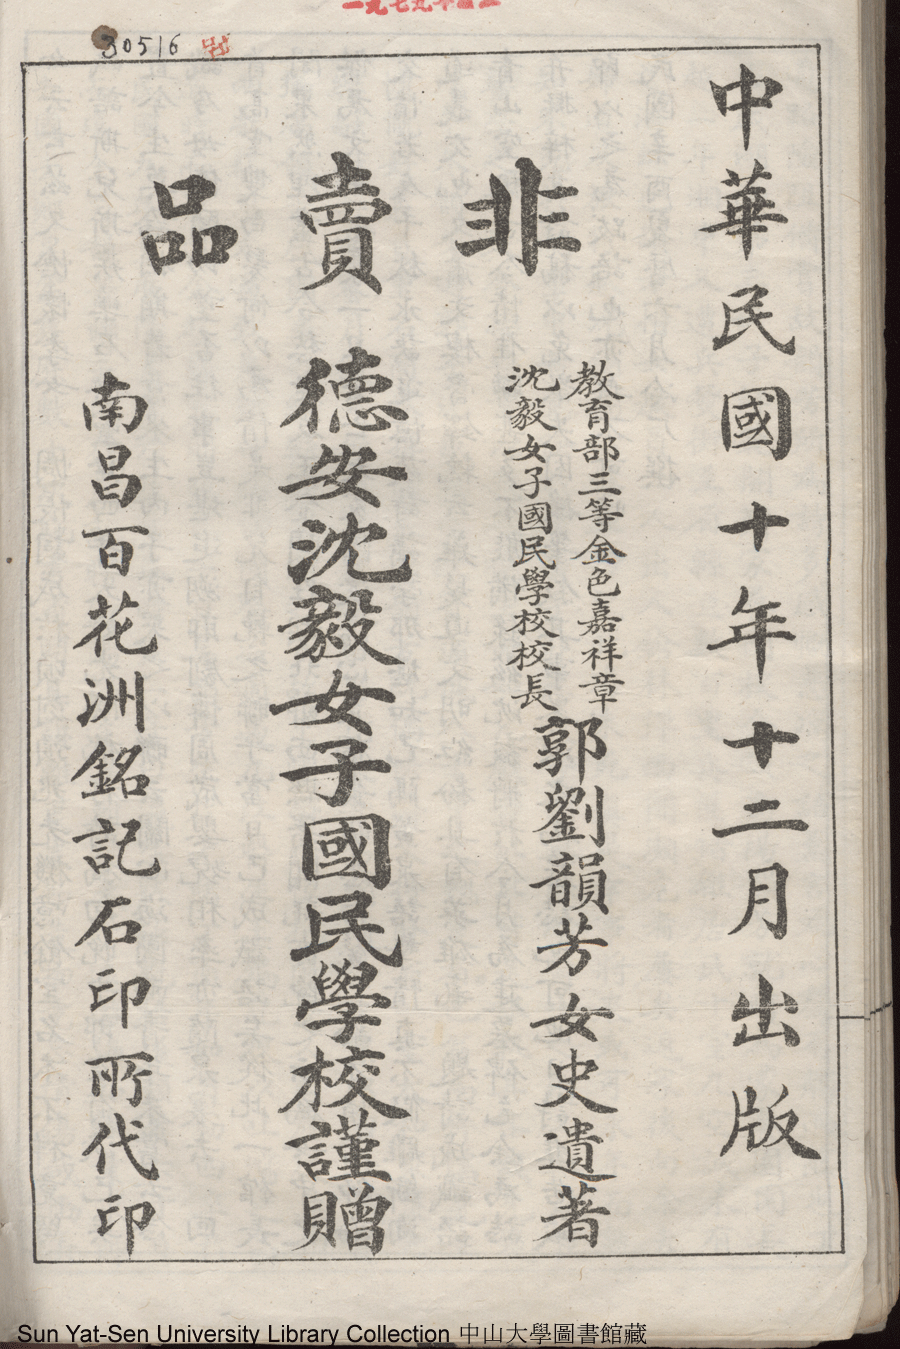 30516
中華民國十年十二月出版
非賣品
教育部三等金色嘉祥章
沈毅女子國民學校校長
郭劉韻芳女史遺著
德安沈毅女子國民學校謹贈
南昌百花洲銘記石印所代印
Sun Yat-Sen University Library Collection 中山大學圖書館藏